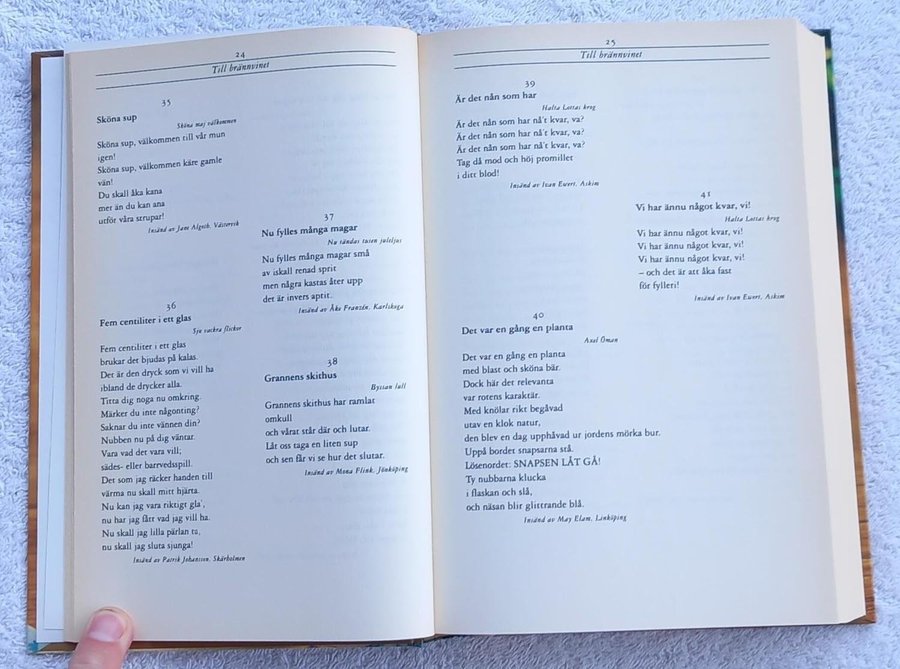 24
Till brännvinet
35
Sköna sup
Sköna maj välkommen
Sköna sup, välkommen till vår mun
igen!
Sköna sup, välkommen käre gamle
vän!
Du skall åka kana
mer än du kan ana
utför våra strupar!
Insänd av Jane Algoth, Västervik
36
Fem centiliter i ett glas
Sju vackra flickor
Fem centiliter i ett glas
brukar det bjudas på kalas.
Det är den dryck som vi vill ha
ibland de drycker alla.
Titta dig noga nu omkring.
Märker du inte någonting?
Saknar du inte vännen din?
Nubben nu på dig väntar.
Vara vad det vara vill;
sädes- eller barvedsspill.
Det som jag räcker handen till
värma nu skall mitt hjärta.
Nu kan jag vara riktigt gla',
nu har jag fått vad jag vill ha.
Nu skall jag lilla pärlan ta,
nu skall jag sluta sjunga!
Insänd av Patrik Johansson, Skärholmen
37
Nu fylles många magar
Nu tändas tusen juleljus
Nu fylles många magar små
av iskall renad sprit
men några kastas åter upp
det är invers aptit.
Insänd av Åke Franzén, Karlskoga
38
Grannens skithus
Byssan lull
Grannens skithus har ramlat
omkull
och vårat står där och lutar.
Låt oss taga en liten sup
och sen får vi se hur det slutar.
Insänd av Mona Flink, Jönköping
25
Till brännvinet
39
Är det nån som har
Halta Lottas krog
Är det nån som har nå't kvar, va?
Är det nån som har nå't kvar, va?
Är det nån som har nå't kvar, va?
Tag då mod och höj promillet
i ditt blod!
Insänd av Ivan Ewert, Askim
41
Vi har ännu något kvar, vi!
Halta Lottas krog
Vi har ännu något kvar, vi!
Vi har ännu något kvar, vi!
Vi har ännu något kvar, vi!
– och det är att åka fast
för fylleri!
Insänd av Ivan Ewert, Askim
40
Det var en gång en planta
Axel Öman
Det var en gång en planta
med blast och sköna bär.
Dock här det relevanta
var rotens karaktär.
Med knölar rikt begåvad
utav en klok natur,
den blev en dag upphåvad ur jordens mörka bur.
Uppå bordet snapsarna stå.
Lösenordet: SNAPSEN LÅT GÅ!
Ty nubbarna klucka
i flaskan och slå,
och näsan blir glittrande blå.
Insänd av May Elam, Linköping